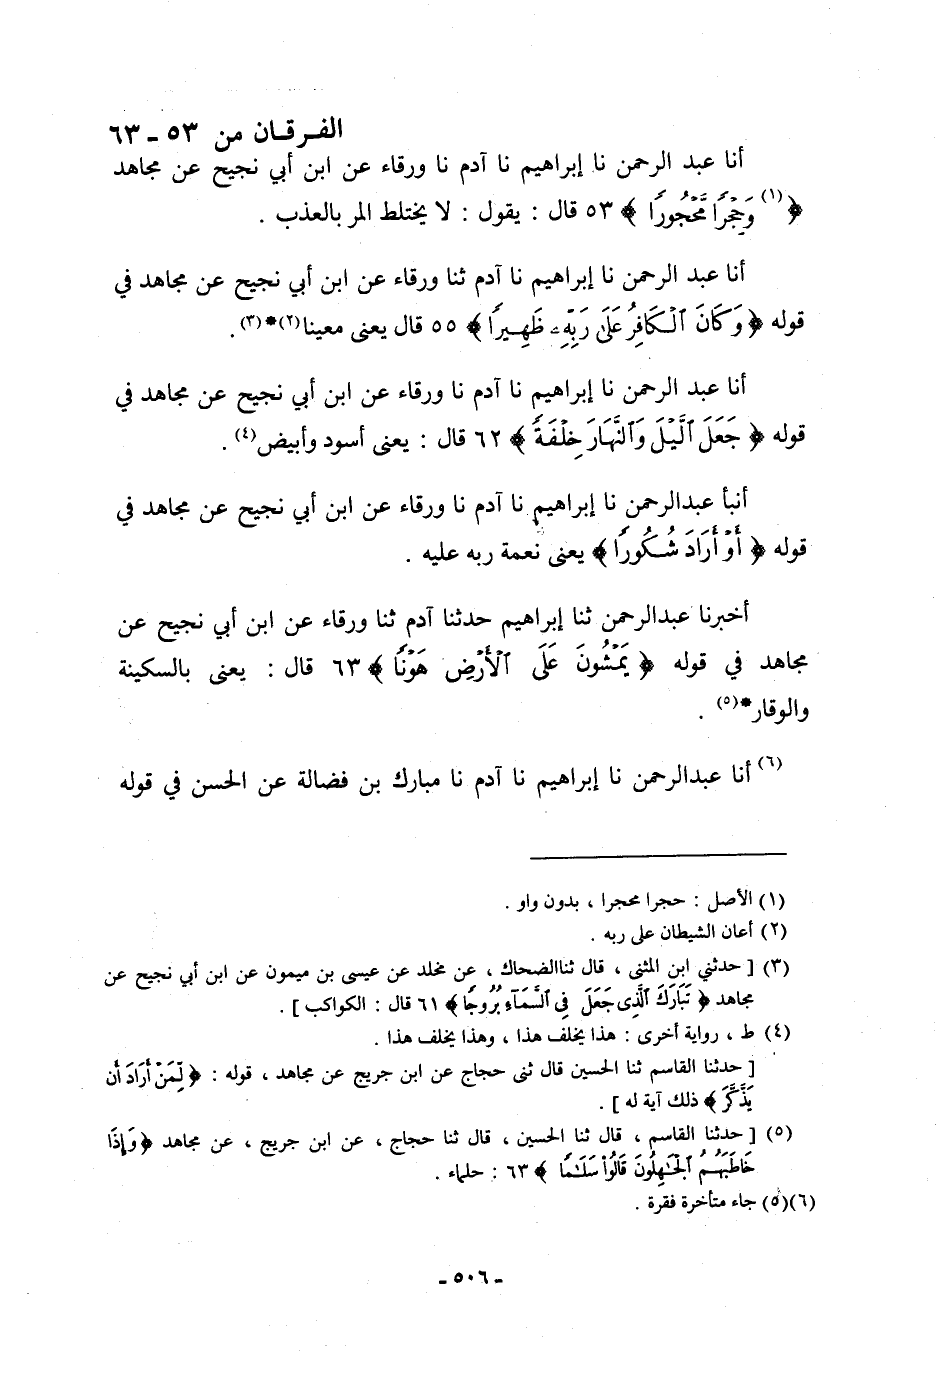 الفرقان من ٥٣ ـ ٦٣
أنا عبد الرحمن نا إبراهيم نا آدم نا ورقاء عن ابن أبي نجيح عن مجاهد
﴿ (١) وَحِجْرًا مَّحْجُورًا ﴾ ٥٣ قال : يقول : لا يختلط المر بالعذب .
أنا عبد الرحمن نا إبراهيم نا آدم ثنا ورقاء عن ابن أبي نجيح عن مجاهد في
قوله ﴿ وَكَانَ ٱلْكَافِرُ عَلَىٰ رَبِّهِۦ ظَهِيرًا ﴾ ٥٥ قال يعنى معينا(٢)*(٣).
أنا عبد الرحمن نا إبراهيم نا آدم نا ورقاء عن ابن أبي نجيح عن مجاهد في
قوله ﴿ جَعَلَ ٱلَّيْلَ وَٱلنَّهَارَ خِلْفَةً ﴾ ٦٢ قال : يعنى أسود وأبيض(٤) .
أنبأ عبدالرحمن نا إبراهيم نا آدم نا ورقاء عن ابن أبي نجيح عن مجاهد في
قوله ﴿ أَوْ أَرَادَ شُكُورًا ﴾ يعنى نعمة ربه عليه .
أخبرنا عبدالرحمن ثنا إبراهيم حدثنا آدم ثنا ورقاء عن ابن أبي نجيح عن
مجاهد في قوله ﴿ يَمْشُونَ عَلَى ٱلْأَرْضِ هَوْنًا ﴾ ٦٣ قال : يعنى بالسكينة
والوقار*(٥) .
(٦) أنا عبدالرحمن نا إبراهيم نا آدم نا مبارك بن فضالة عن الحسن في قوله
(١) الأصل : حجرا محجرا ، بدون واو .
(٢) أعان الشيطان على ربه .
(٣) [ حدثني ابن المثنى ، قال ثناالضحاك ، عن مخلد عن عيسى بن ميمون عن ابن أبي نجيح عن
مجاهد ﴿ تَبَارَكَ ٱلَّذِى جَعَلَ فِى ٱلسَّمَآءِ بُرُوجًا ﴾ ٦١ قال : الكواكب ] .
(٤) ط ، رواية أخرى : هذا يخلف هذا ، وهذا يخلف هذا .
[ حدثنا القاسم ثنا الحسين قال ثنى حجاج عن ابن جريج عن مجاهد ، قوله : ﴿ لِّمَنْ أَرَادَ أَن
يَذَّكَّرَ ﴾ ذلك آية له ] .
(٥) [ حدثنا القاسم ، قال ثنا الحسين ، قال ثنا حجاج ، عن ابن جريج ، عن مجاهد ﴿ وَإِذَا
خَاطَبَهُمُ ٱلْجَٰهِلُونَ قَالُوا۟ سَلَٰمًا ﴾ ٦٣ : حلماء .
(٦)(٥) جاء متأخرة فقرة .
ـ ٥٠٦ ـ